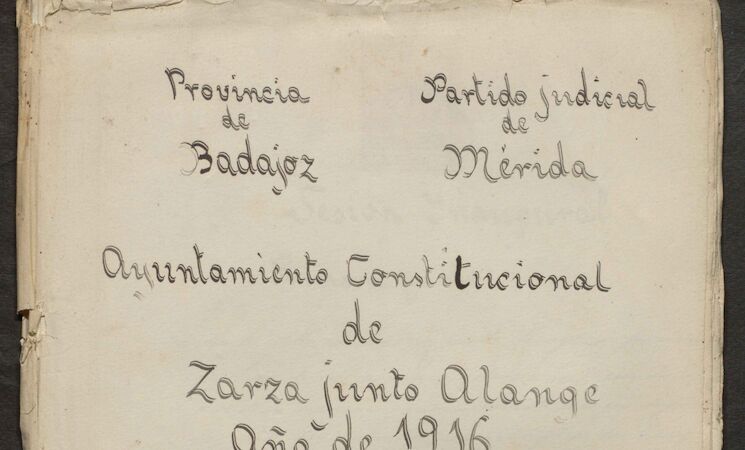 Provincia
de
Badajoz
Partido judicial
de
Mérida
Ayuntamiento Constitucional
de
Zarza junto Alange
Año de 1916